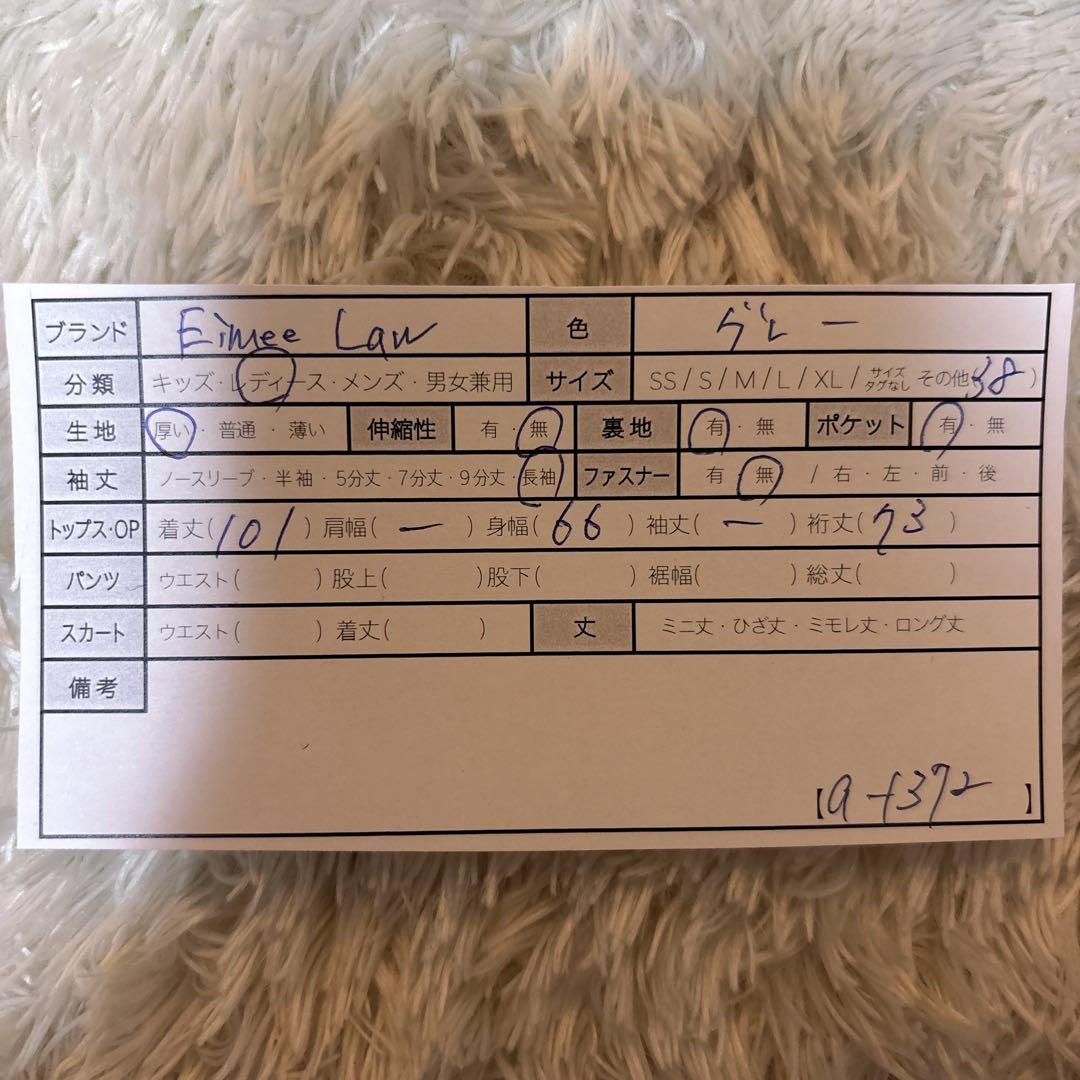 ブランド Eimee Law 色 グレー
分類 キッズ・レディース・メンズ・男女兼用 サイズ SS / S / M / L / XL / サイズタグなし その他(38)
生地 厚い・普通・薄い 伸縮性 有・無 裏地 有・無 ポケット 有・無
袖丈 ノースリーブ・半袖・5分丈・7分丈・9分丈・長袖 ファスナー 有・無 / 右・左・前・後
トップス・OP 着丈(101) 肩幅(ー) 身幅(66) 袖丈(ー) 裄丈(73)
パンツ ウエスト( ) 股上( ) 股下( ) 裾幅( ) 総丈( )
スカート ウエスト( ) 着丈( ) 丈 ミニ丈・ひざ丈・ミモレ丈・ロング丈
備考